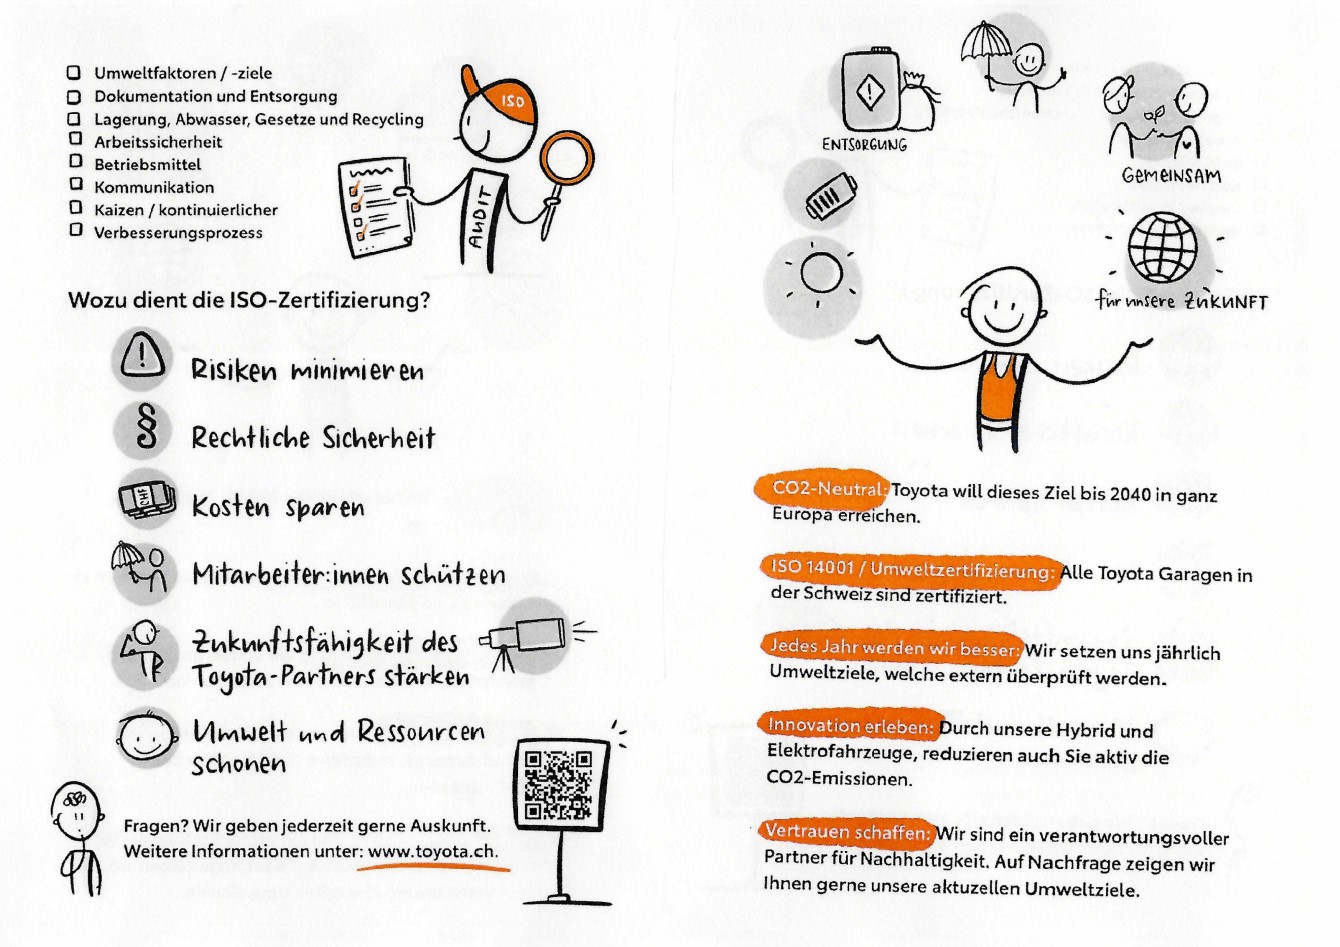 Umweltfaktoren / -ziele
Dokumentation und Entsorgung
Lagerung, Abwasser, Gesetze und Recycling
Arbeitssicherheit
Betriebsmittel
Kommunikation
Kaizen / kontinuierlicher
Verbesserungsprozess
ISO
AUDIT
Wozu dient die ISO-Zertifizierung?
Risiken minimieren
§
Rechtliche Sicherheit
Kosten sparen
Mitarbeiter:innen schützen
Zukunftsfähigkeit des
Toyota-Partners stärken
Umwelt und Ressourcen
schonen
Fragen? Wir geben jederzeit gerne Auskunft.
Weitere Informationen unter: www.toyota.ch.
ENTSORGUNG
GEMEINSAM
für unsere ZUKUNFT
CO2-Neutral: Toyota will dieses Ziel bis 2040 in ganz
Europa erreichen.
ISO 14001 / Umweltzertifizierung: Alle Toyota Garagen in
der Schweiz sind zertifiziert.
Jedes Jahr werden wir besser: Wir setzen uns jährlich
Umweltziele, welche extern überprüft werden.
Innovation erleben: Durch unsere Hybrid und
Elektrofahrzeuge, reduzieren auch Sie aktiv die
CO2-Emissionen.
Vertrauen schaffen: Wir sind ein verantwortungsvoller
Partner für Nachhaltigkeit. Auf Nachfrage zeigen wir
Ihnen gerne unsere aktuzellen Umweltziele.